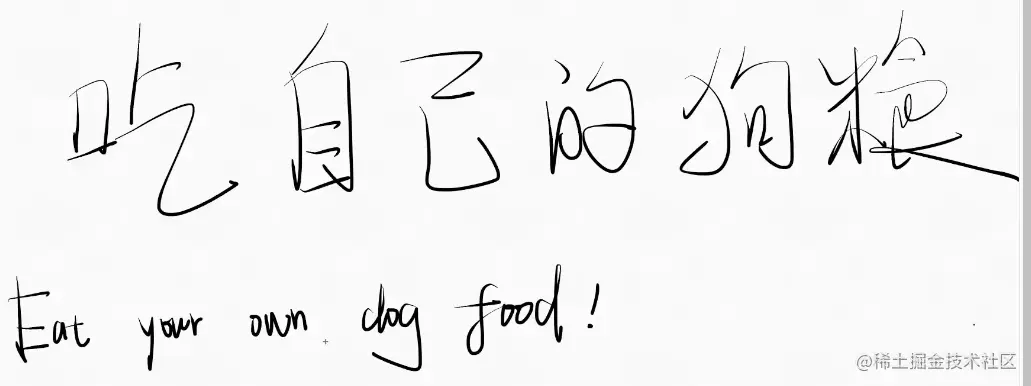 吃自己的狗粮
Eat your own dog food!
@稀土掘金技术社区